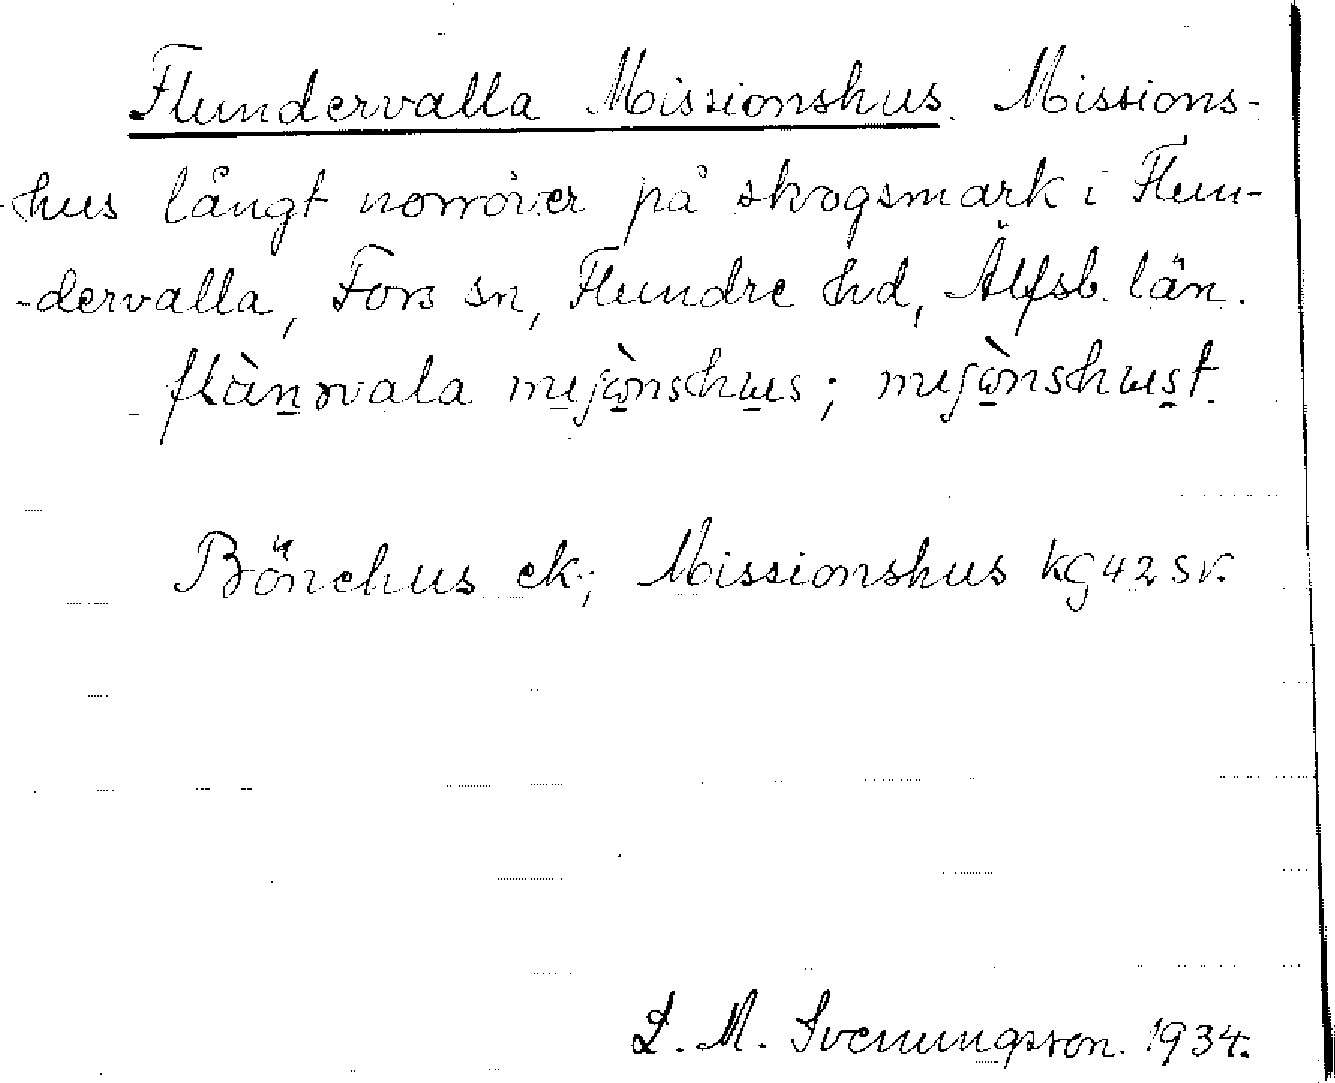 Flundervalla Missionshus. Missions-
-hus långt norröver på skogsmark i Flun-
-dervalla, Fors sn, Flundre hd, Älfsb. län.
flàn̲rvala me̲ʃò̲nshu̲s; meʃò̲nshu̲st.
Bönehus ek.; Missionshus KG 42 SV.
L. M. Svenungsson. 1934.